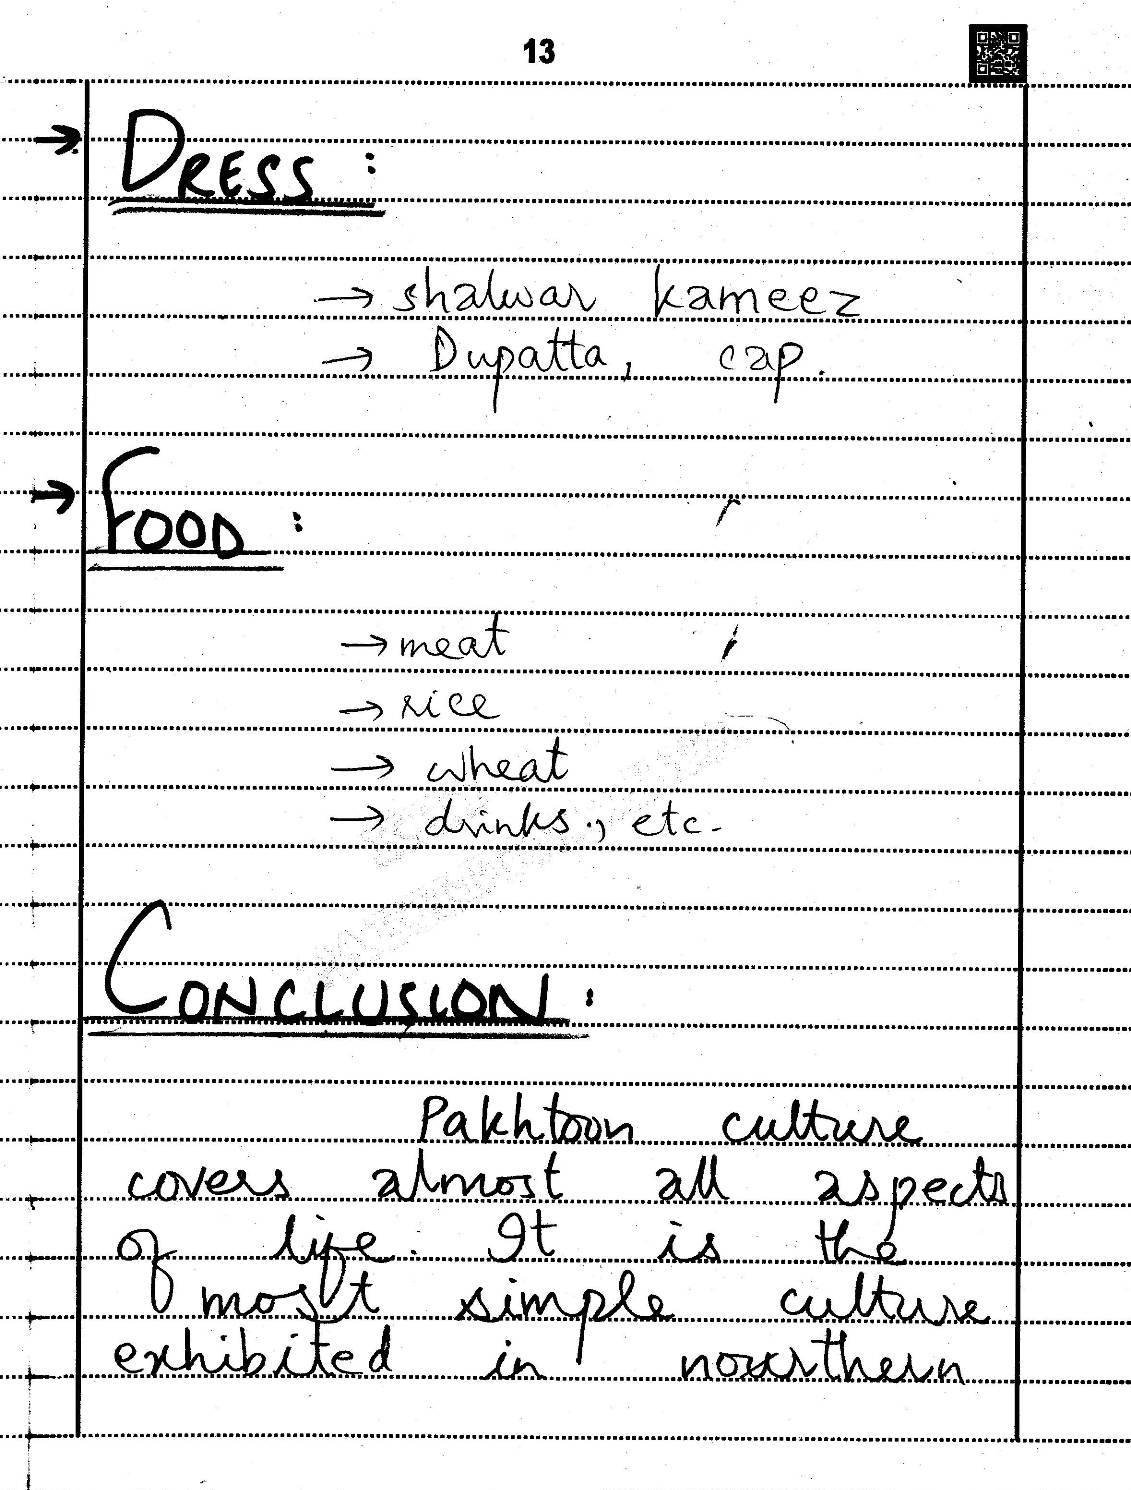 13
→ DRESS :
→ shalwar kameez
→ Dupatta, cap.
→ FOOD :
→ meat
→ rice
→ wheat
→ drinks., etc.
CONCLUSION :
Pakhtoon culture
covers almost all aspects
of life. It is the
most simple culture
exhibited in nourthern